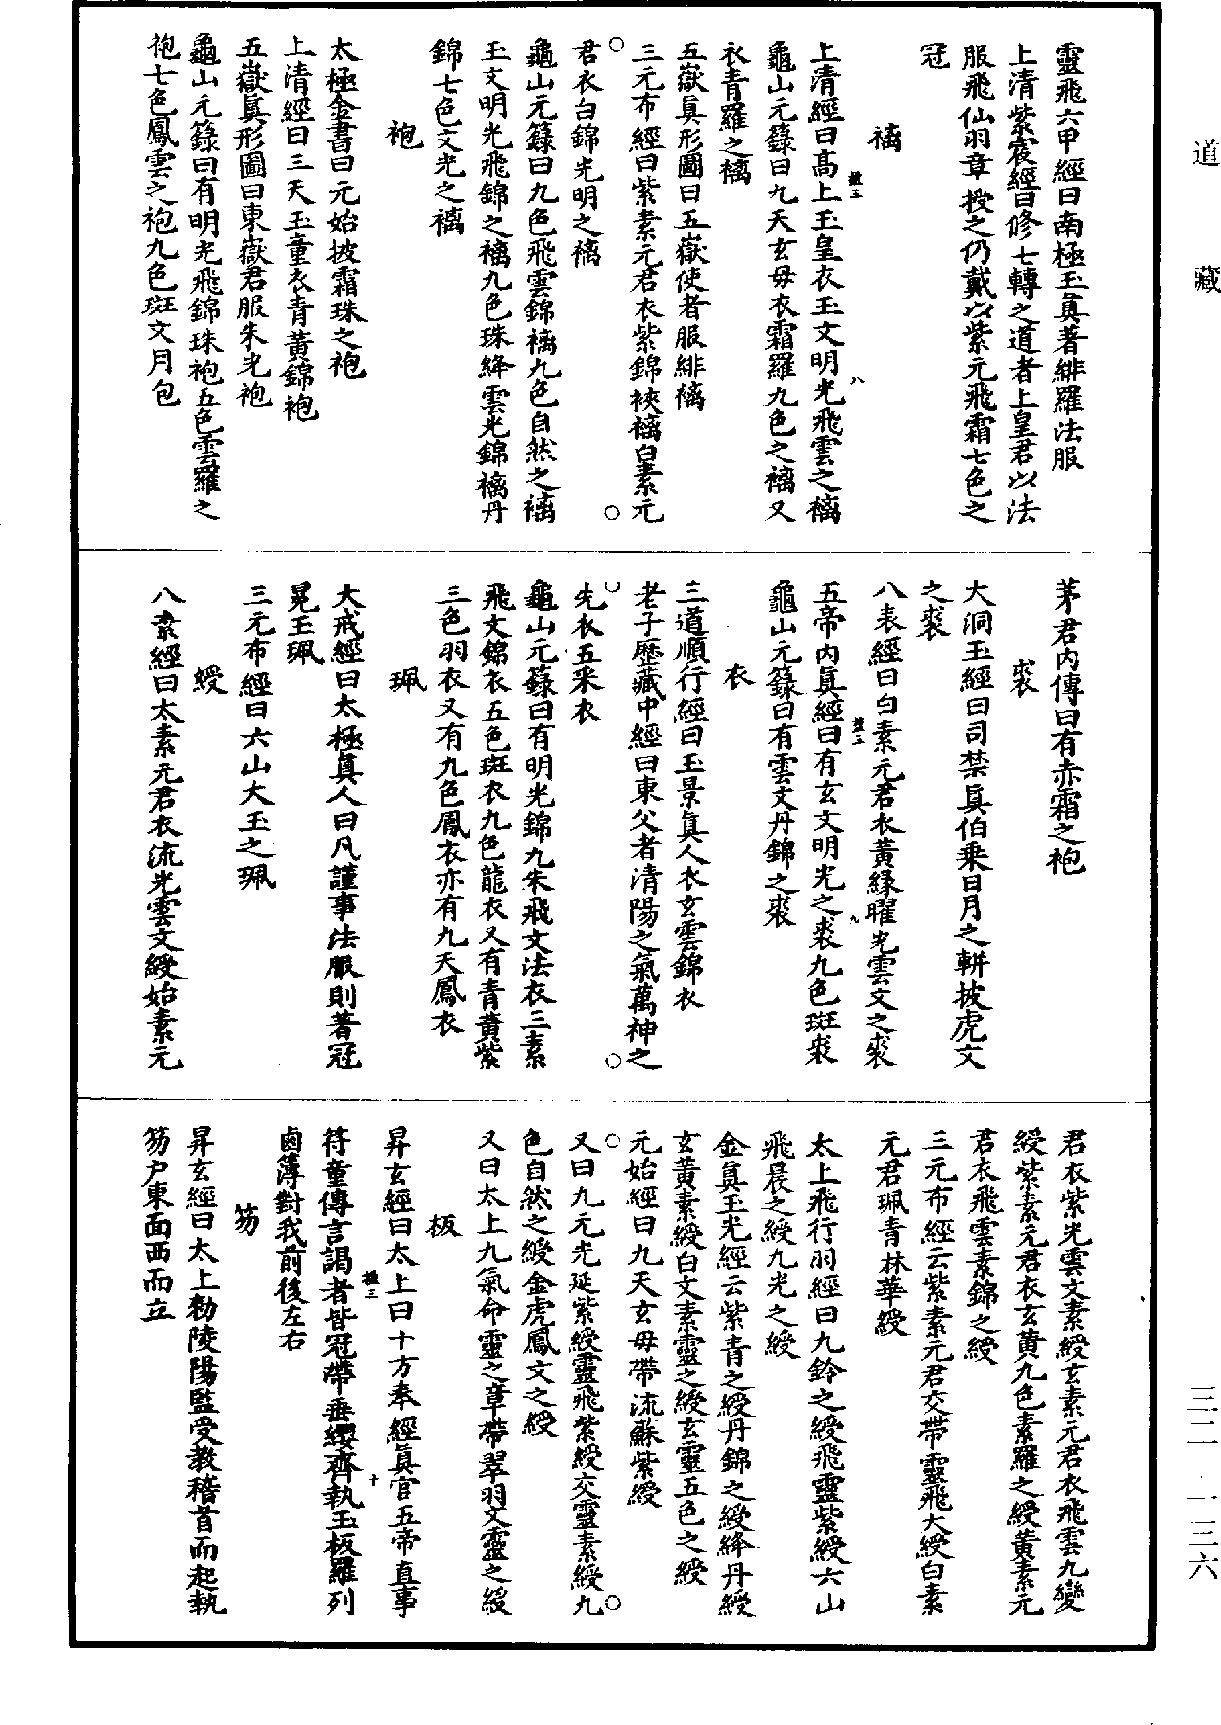 道藏
靈飛六甲經曰南極玉真著緋羅法服
上清紫宸經曰修七轉之道者上皇君以法
服飛仙羽章授之仍戴以紫元飛霜七色之
冠
褵
上清經曰高上玉皇衣玉文明光飛雲之褵
龜山元籙曰九天玄母衣霜羅九色之褵又
衣青羅之褵
五嶽真形圖曰五嶽使者服緋褵
三元布經曰紫素元君衣紫錦裌褵白素元
君衣白錦光明之褵
龜山元籙曰九色飛雲錦褵九色自然之褵
玉文明光飛錦之褵九色珠絳雲光錦褵丹
錦七色文光之褵
袍
太極金書曰元始披霜珠之袍
上清經曰三天玉童衣青黃錦袍
五嶽真形圖曰東嶽君服朱光袍
龜山元籙曰有明光飛錦珠袍五色雲羅之
袍七色鳳雲之袍九色斑文月包
茅君內傳曰有赤霜之袍
裘
大洞玉經曰司禁真伯乘日月之軿披虎文
之裘
八表經曰白素元君衣黃綠曜光雲文之裘
五帝內真經曰有玄文明光之裘九色斑裘
龜山元籙曰有雲文丹錦之裘
衣
三道順行經曰玉景真人衣玄雲錦衣
老子歷藏中經曰東父者清陽之氣萬神之
先衣五采衣
龜山元籙曰有明光錦九朱飛文法衣三素
飛文錦衣五色斑衣九色龍衣又有青黃紫
三色羽衣又有九色鳳衣亦有九天鳳衣
珮
大戒經曰太極真人曰凡謹事法服則著冠
冕玉珮
三元布經曰六山大玉之珮
綬
八素經曰太素元君衣流光雲文綬始素元
君衣紫光雲文素綬玄素元君衣飛雲九變
綬紫素元君衣玄黃九色素羅之綬黃素元
君衣飛雲素錦之綬
三元布經云紫素元君交帶靈飛大綬白素
元君珮青林華綬
太上飛行羽經曰九鈴之綬飛靈紫綬六山
飛晨之綬九光之綬
金真玉光經云紫青之綬丹錦之綬絳丹綬
玄黃素綬白文素靈之綬玄靈五色之綬
元始經曰九天玄母帶流蘇紫綬
又曰九元光延紫綬靈飛紫綬交靈素綬九
色自然之綬金虎鳳文之綬
又曰太上九氣命靈之章帶翠羽文靈之綬
板
昇玄經曰太上曰十方奉經真官五帝直事
符童傳言謁者皆冠帶垂纓齊執玉板羅列
鹵簿對我前後左右
笏
昇玄經曰太上勑陵陽監受教稽首而起執
笏户東面西而立
八
九
十
三二—一三六